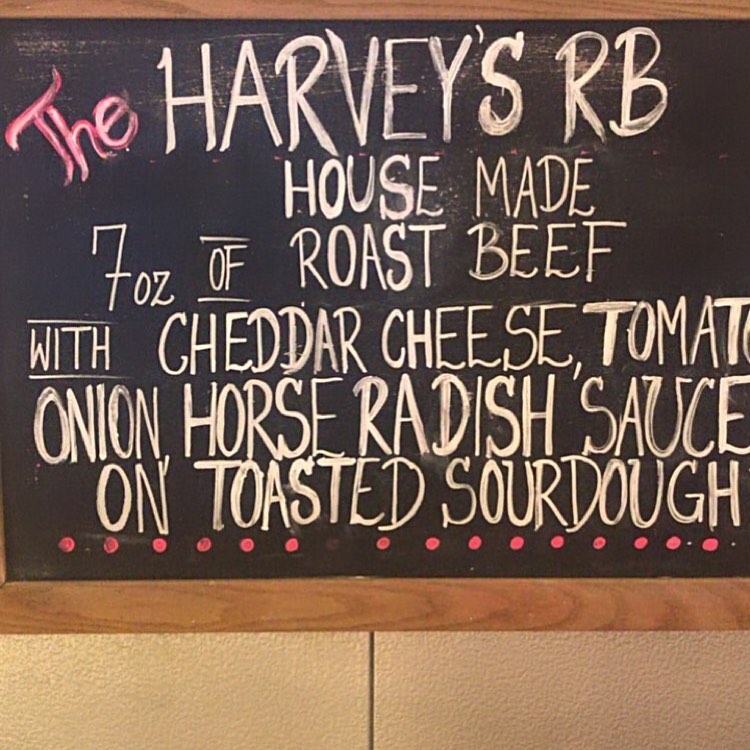 The HARVEY'S RB
HOUSE MADE
7oz OF ROAST BEEF
WITH CHEDDAR CHEESE, TOMATO
ONION, HORSE RADISH SAUCE
ON TOASTED SOURDOUGH